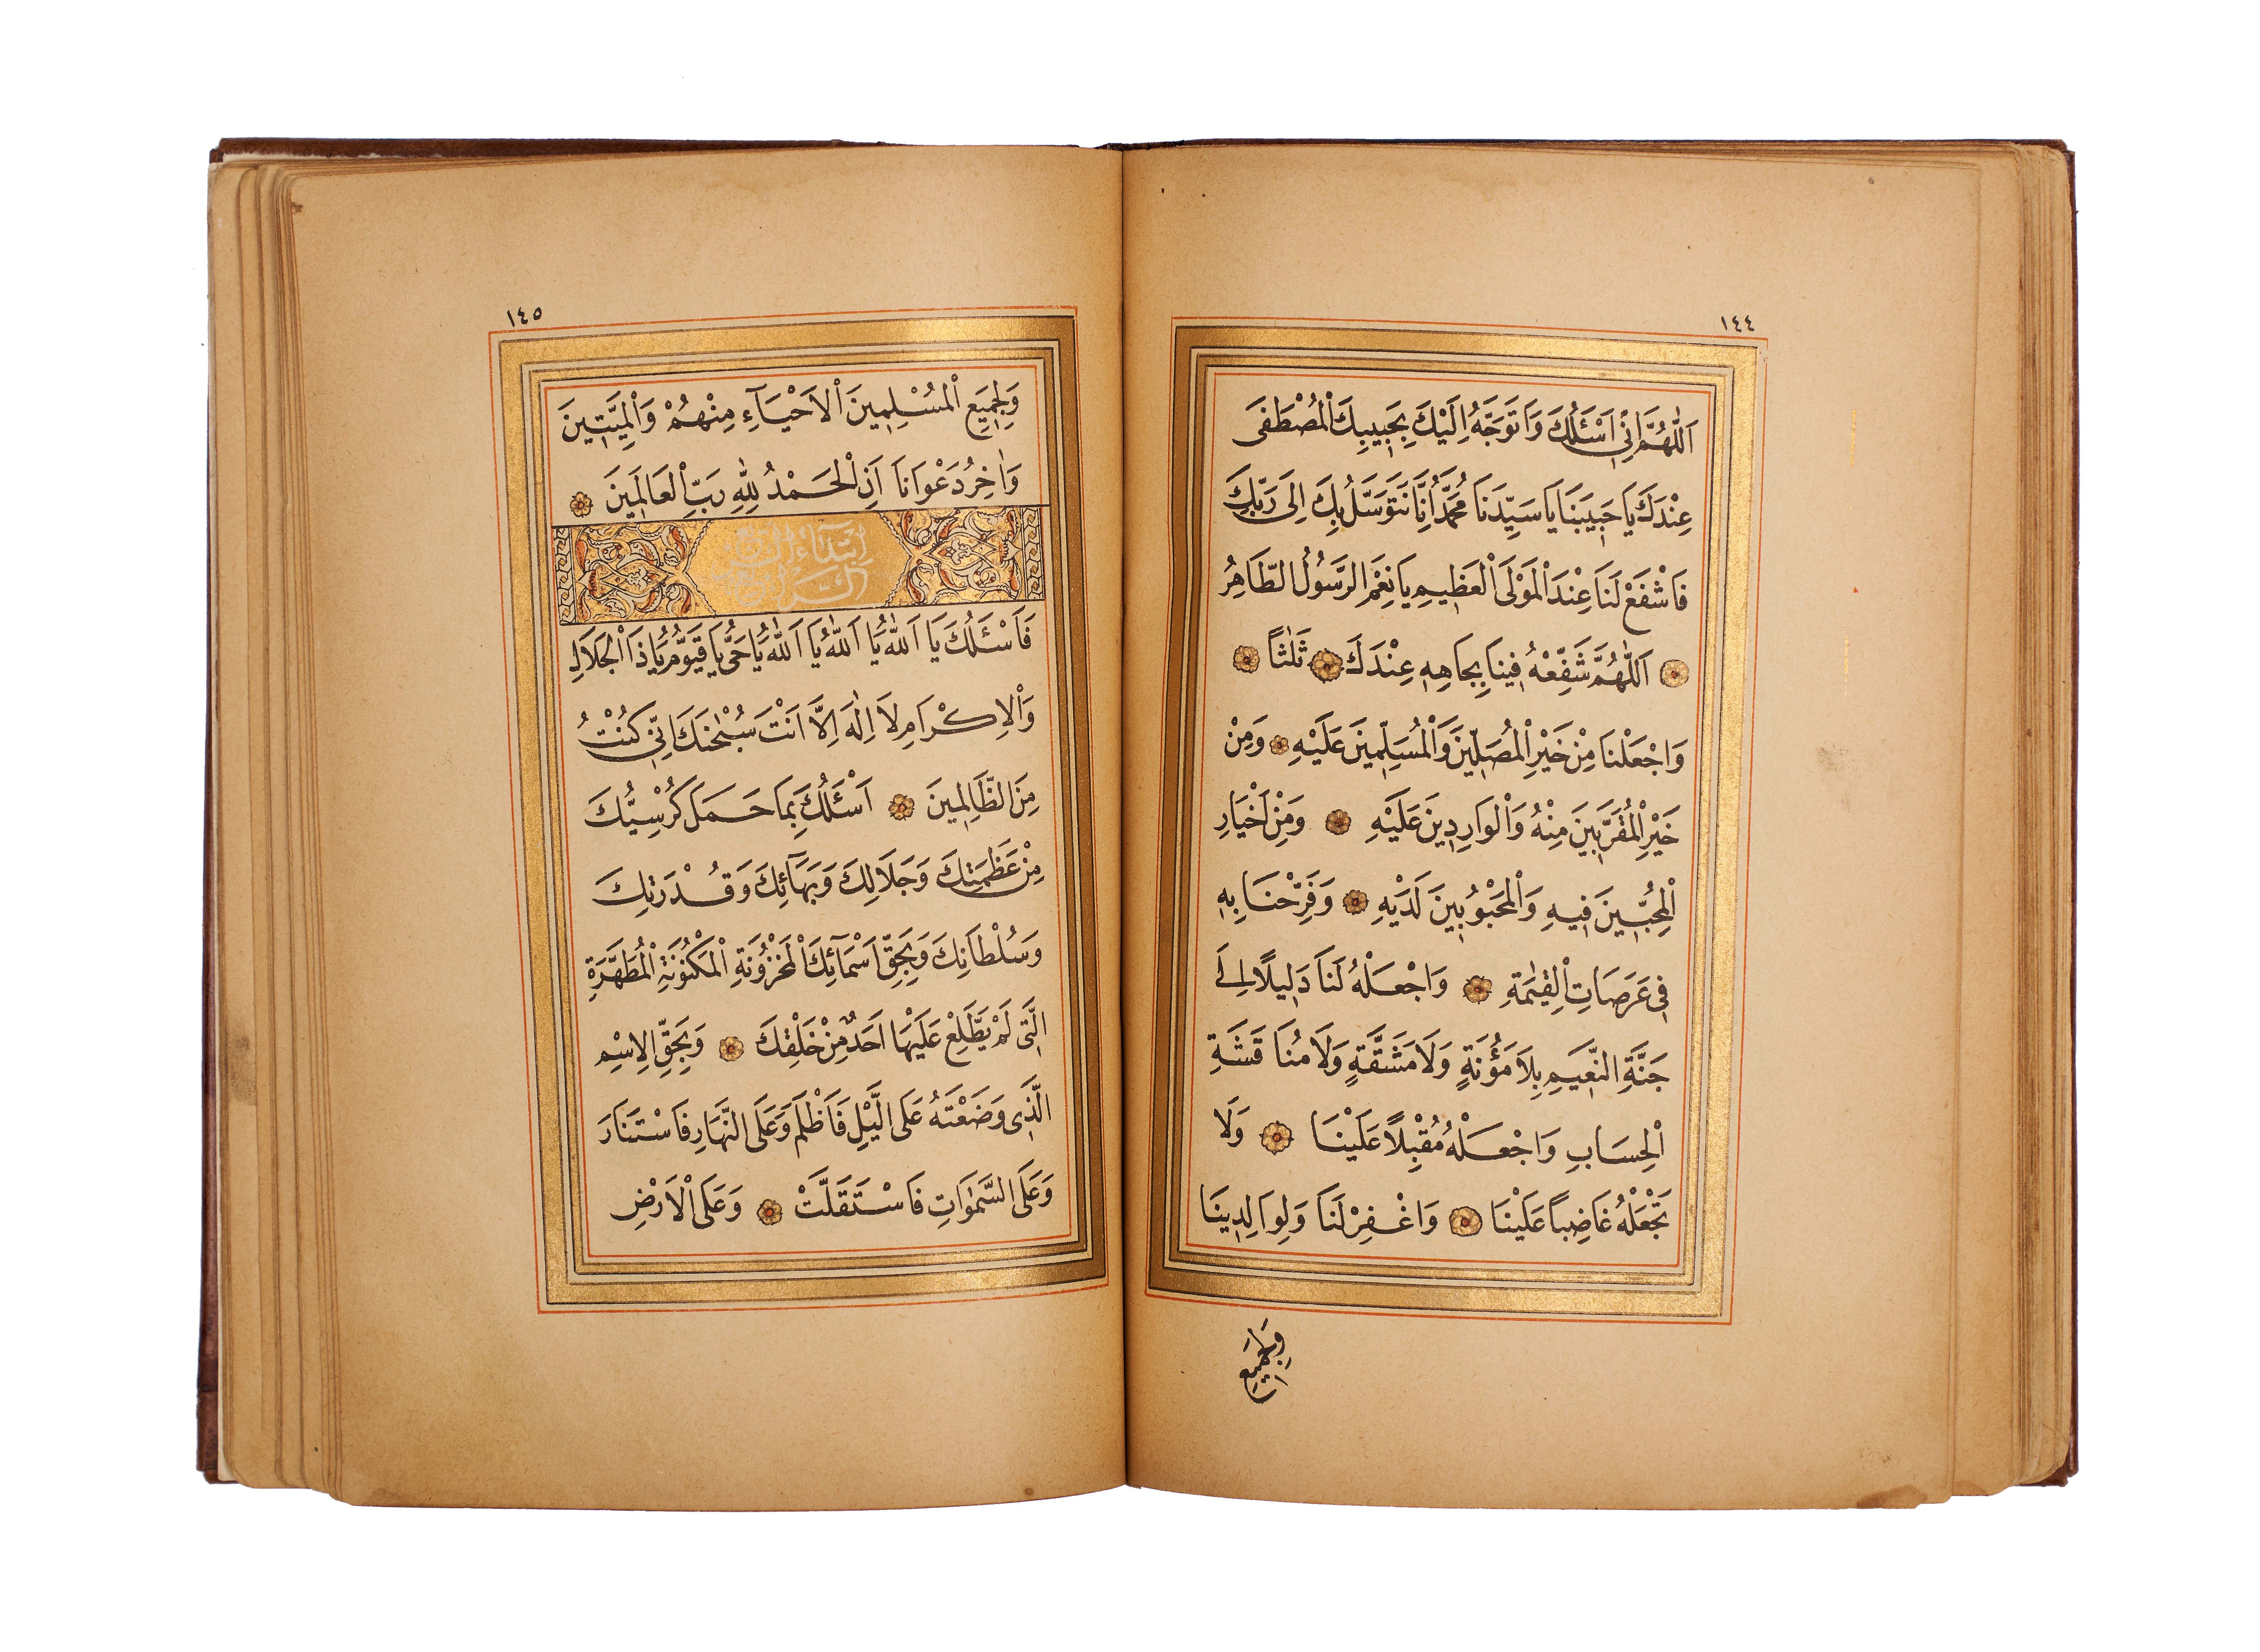 ١٤٤
اَللّٰهُمَّ اِنِّي اَسْئَلُكَ وَاَتَوَجَّهُ اِلَيْكَ بِحَبِيبِكَ الْمُصْطَفَى
عِنْدَكَ يَا حَبِيبَنَا يَا سَيِّدَنَا مُحَمَّدُ اِنَّا نَتَوَسَّلُ بِكَ اِلَى رَبِّكَ
فَاشْفَعْ لَنَا عِنْدَ الْمَوْلَى الْعَظِيمِ يَا نِعْمَ الرَّسُولُ الطَّاهِرُ
اَللّٰهُمَّ شَفِّعْهُ فِينَا بِجَاهِهِ عِنْدَكَ ثَلٰثًا
وَاجْعَلْنَا مِنْ خَيْرِ الْمُصَلِّينَ وَالْمُسَلِّمِينَ عَلَيْهِ وَمِنْ
خَيْرِ الْمُقَرَّبِينَ مِنْهُ وَالْوَارِدِينَ عَلَيْهِ وَمِنْ اَخْيَارِ
الْمُحِبِّينَ فِيهِ وَالْمَحْبُوبِينَ لَدَيْهِ وَفَرِّحْنَا بِهِ
فِي عَرَصَاتِ الْقِيٰمَةِ وَاجْعَلْهُ لَنَا دَلِيلًا اِلَى
جَنَّةِ النَّعِيمِ بِلَا مَؤُنَةٍ وَلَا مَشَقَّةٍ وَلَا مُنَاقَشَةِ
الْحِسَابِ وَاجْعَلْهُ مُقْبِلًا عَلَيْنَا وَلَا
تَجْعَلْهُ غَاضِبًا عَلَيْنَا وَاغْفِرْ لَنَا وَلِوَالِدِينَا
وَلِجَمِيعِ
١٤٥
وَلِجَمِيعِ الْمُسْلِمِينَ الْاَحْيَآءِ مِنْهُمْ وَالْمَيِّتِينَ
وَاٰخِرُ دَعْوَانَا اَنِ الْحَمْدُ لِلّٰهِ رَبِّ الْعَالَمِينَ
اِبْتِدَاءُ
فَاَسْئَلُكَ يَا اَللّٰهُ يَا اَللّٰهُ يَا اَللّٰهُ يَا حَىُّ يَا قَيُّومُ يَا ذَا الْجَلَالِ
وَالْاِكْرَامِ لَا اِلٰهَ اِلَّا اَنْتَ سُبْحٰنَكَ اِنِّي كُنْتُ
مِنَ الظَّالِمِينَ اَسْئَلُكَ بِمَا حَمَلَ كُرْسِيُّكَ
مِنْ عَظَمَتِكَ وَجَلَالِكَ وَبَهَآئِكَ وَقُدْرَتِكَ
وَسُلْطَانِكَ وَبِحَقِّ اَسْمَآئِكَ الْمَخْزُونَةِ الْمَكْنُونَةِ الْمُطَهَّرَةِ
الَّتِى لَمْ يَطَّلِعْ عَلَيْهَا اَحَدٌ مِنْ خَلْقِكَ وَبِحَقِّ الْاِسْمِ
الَّذِى وَضَعْتَهُ عَلَى الَّيْلِ فَاَظْلَمَ وَعَلَى النَّهَارِ فَاسْتَنَارَ
وَعَلَى السَّمٰوَاتِ فَاسْتَقَلَّتْ وَعَلَى الْاَرْضِ